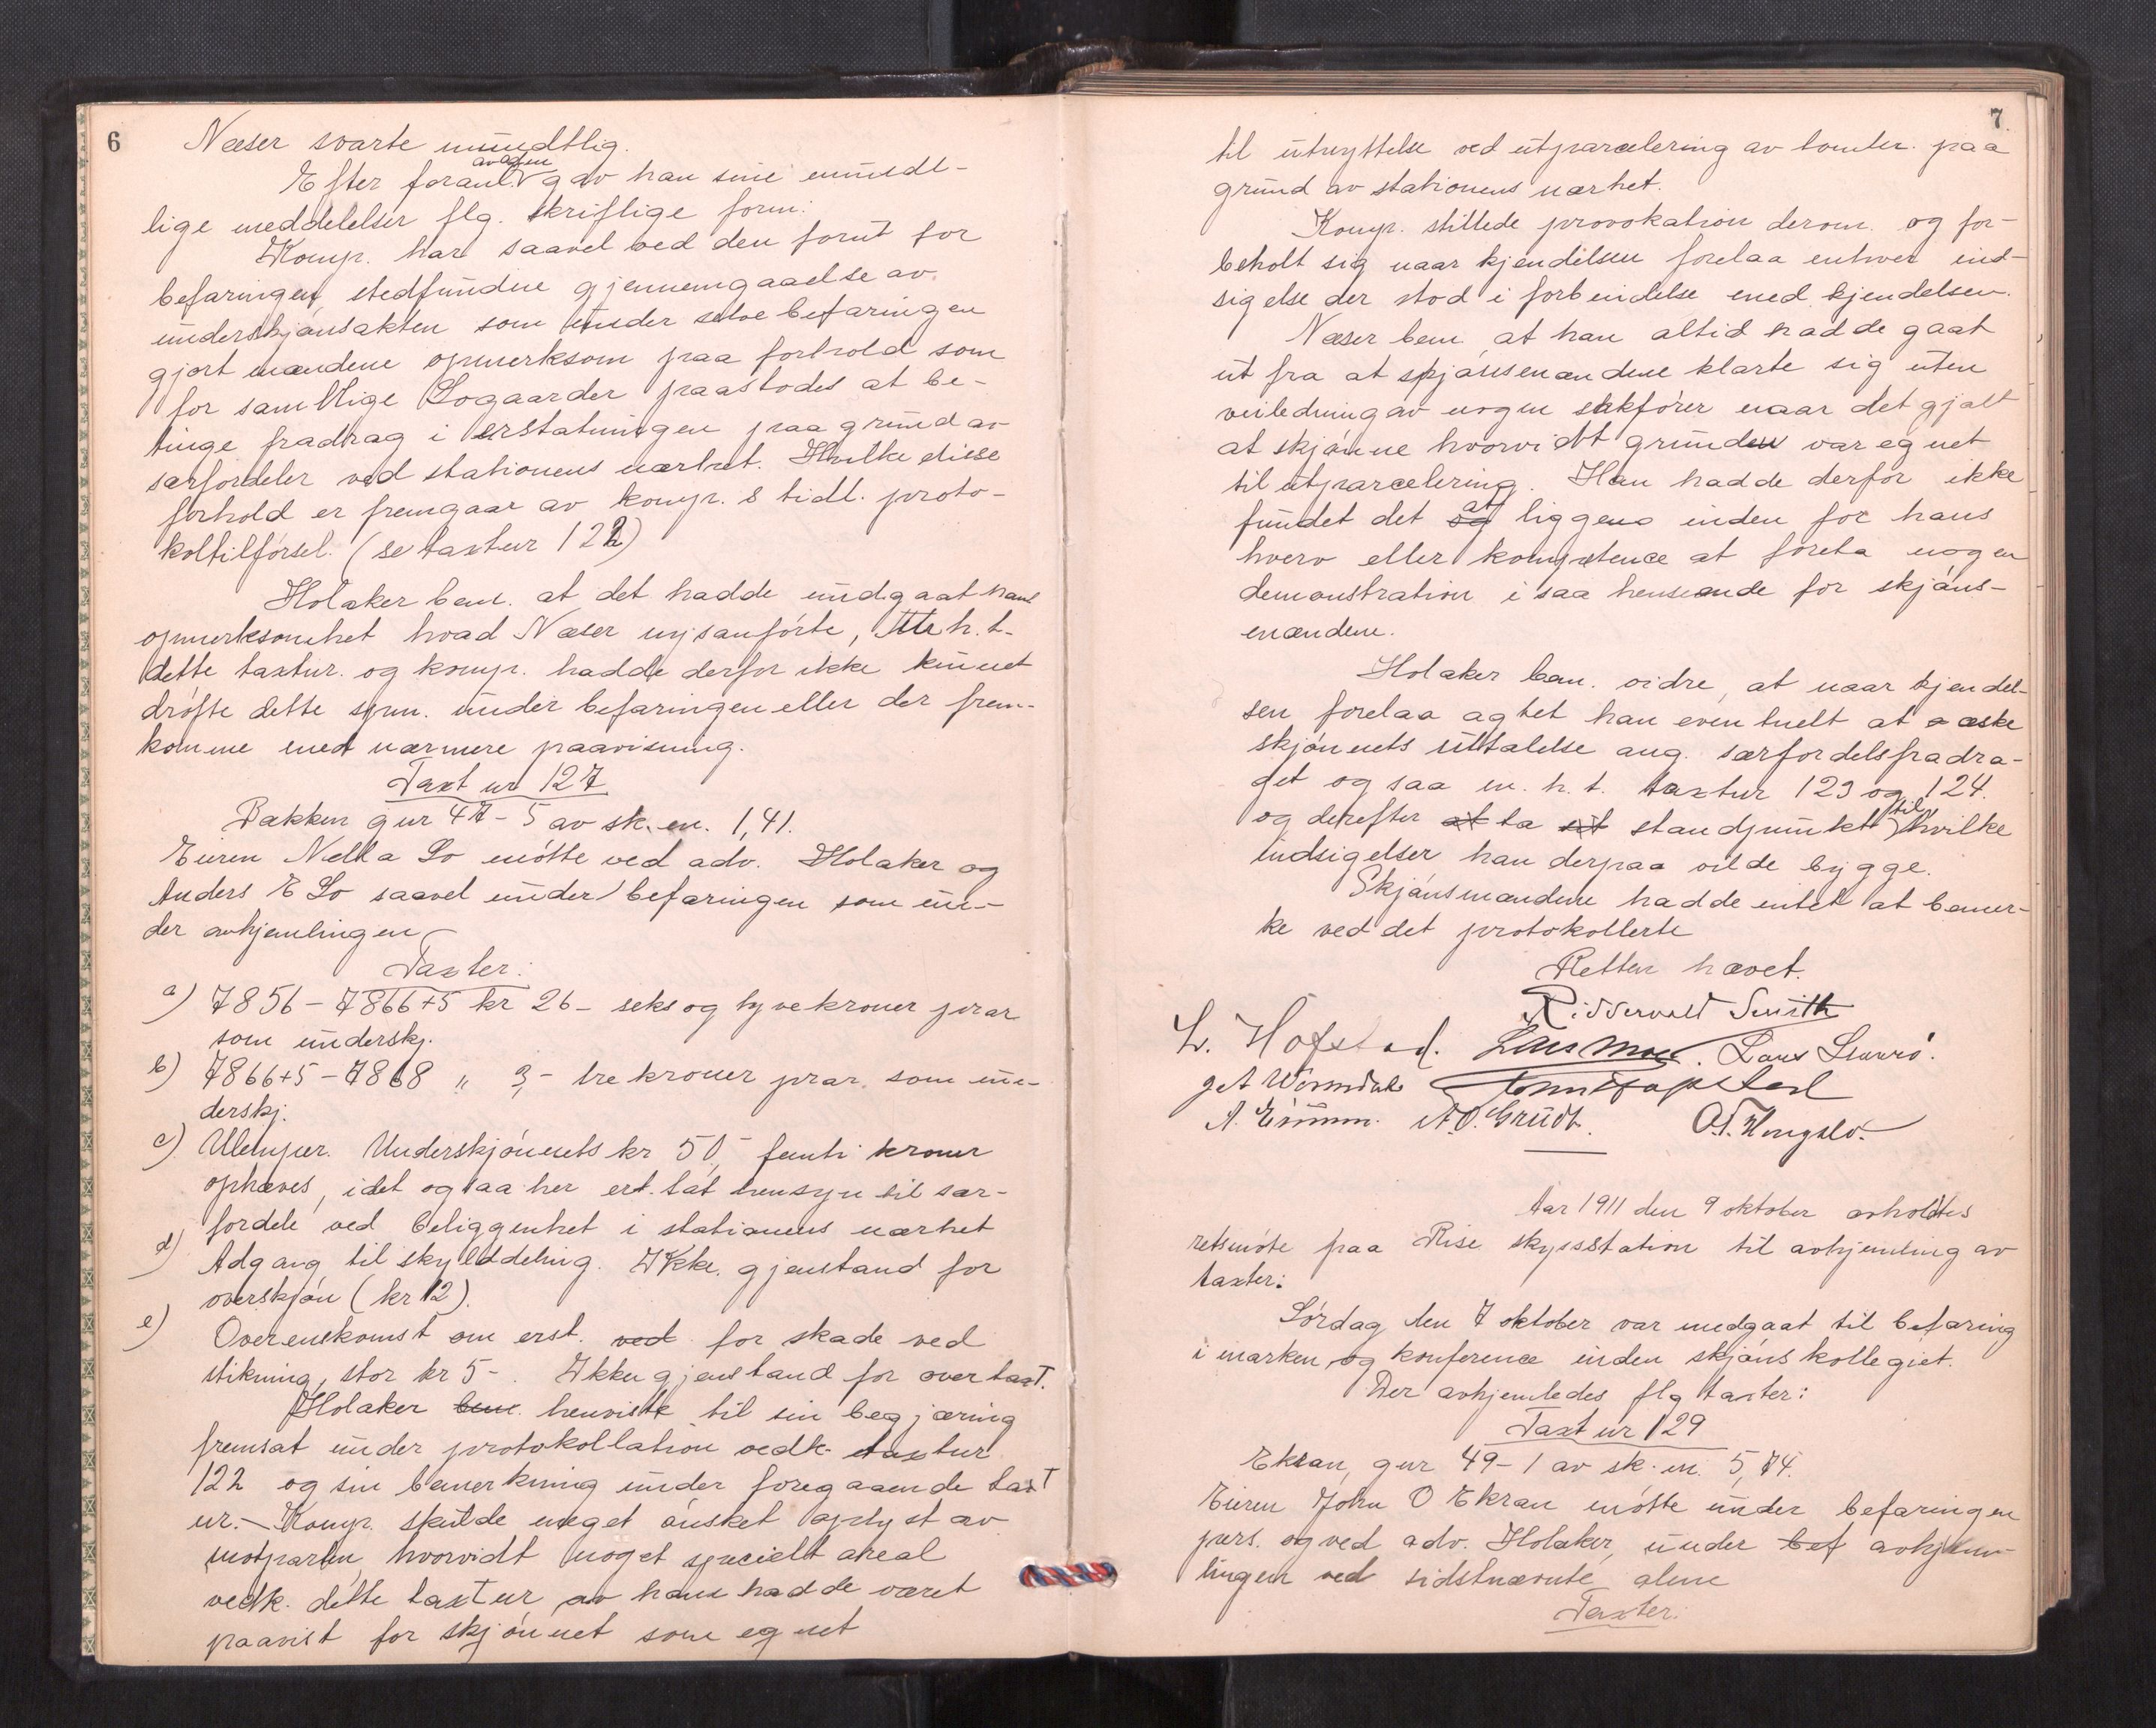 6
Næser svarte mundtlig.
avgjen
Efter foranl. gav han sine mundt-
lige meddelelser flg. skriftlige form:
Komp. har saavel ved den forut for
befaringen stedfundne gjennemgaaelse av
underskjønsakten som under selve befaringen
gjort mændene opmerksom paa forhold som
for samtlige Logaarder paastodes at be-
tinge fradrag i erstatningen paa grund av
særfordeler ved stationens nærhet. Hvilke disse
forhold er fremgaar av komp.s tidl. proto-
koltilførsel. (se taxtnr 122)
Holaker bem. at det hadde undgaat hans
opmerksomhet hvad Næser nys anførte, m. h. t.
dette taxtnr. og komp. hadde derfor ikke kunnet
drøfte dette spm. under befaringen eller der frem-
komme med nærmere paavisning.
Taxt nr 127
Bakken gnr 47-5 av sk. m. 1,41.
Eieren Nella Lo møtte ved adv. Holaker og
Anders E Lo saavel under befaringen som un-
der avhjemlingen
Taxter:
a) 7856-7866+5 kr 26- seksogtyve kroner prar
som underskj.
b) 7866+5-7868 " 3,- tre kroner prar. som un-
derskj.
c) Ulemper. Underskjønnets kr 50,- femti kroner
ophæves, idet ogsaa her er tat hensyn til sær-
fordele ved beliggenhet i stationens nærhet
d) Adgang til skylddeling. Ikke gjenstand for
overskjøn (kr 12).
e) Overenskomst om erst. ved for skade ved
stikning, stor kr 5-. Ikke gjenstand for overtaxt.
Holaker bem. henviste til sin begjæring
fremsat under protokollation vedk. taxtnr
122 og sin bemerkning under foregaaende taxt
nr.- Komp. skulde meget ønsket oplyst av
motparten, hvorvidt noget specielt areal
vedk. dette taxtnr av ham hadde været
paavist for skjønnet som egnet
7.
til utnyttelse ved utparcelering av tomter paa
grund av stationens nærhet.
Komp. stillede provokation derom og for-
beholt sig naar kjendelsen forelaa enhver ind-
sigelse der stod i forbindelse med kjendelsen.
Næser bem. at han altid hadde gaat
ut fra at skjønsmændene klarte sig uten
veiledning av nogen sakfører naar det gjalt
at skjønne hvorvidt grunden var egnet
til utparcelering. Han hadde derfor ikke
at
fundet det og liggende inden for hans
hverv eller kompetence at foreta nogen
demonstration i saa henseende for skjøns-
mændene.
Holaker bem. vidre, at naar kjendel-
sen forelaa agtet han eventuelt at æske
skjønnets uttalelse ang. særfordelsfradra-
get ogsaa m. h. t. taxtnr 123 og 124.
til
og derefter at ta sit standpunkt hvilke
indsigelser han derpaa vilde bygge.
Skjønsmændene hadde intet at bemer-
ke ved det protokollerte
Retten hævet.
Riddervold Smith
L. Hofstad. Lars Moe. Lars
A. O. Grudt.
Aar 1911 den 9 oktober avholdtes
retsmøte paa Rise skysstation til avhjemling av
taxter:
Lørdag den 7 oktober var medgaat til befaring
i marken og konference inden skjønskollegiet.
Der avhjemledes flg taxter:
Taxt nr 129
Ekran, gnr 49-1 av sk. m. 5,74.
Eieren John O Ekran møtte under befaringen
pers. og ved adv. Holaker, under bef avhjem-
lingen ved sidstnævnte alene
Taxter: